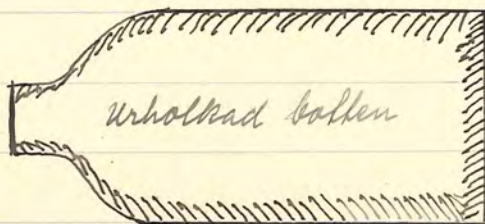 urholkad botten